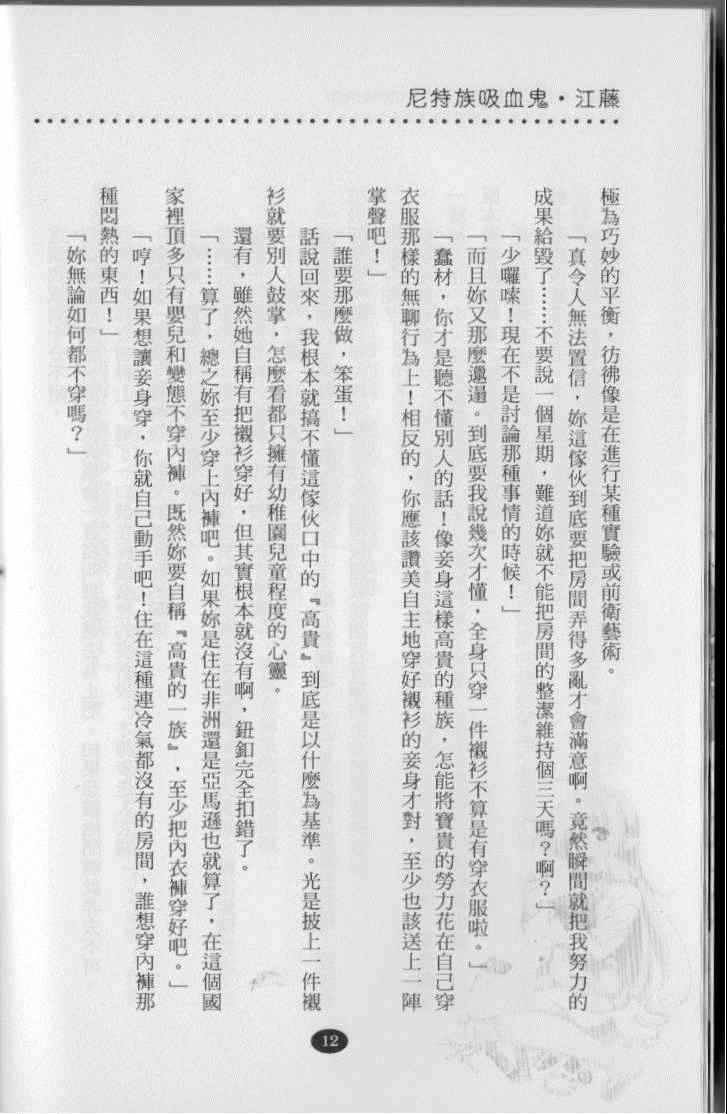 尼特族吸血鬼・江藤
極為巧妙的平衡，彷彿像是在進行某種實驗或前衛藝術。
「真令人無法置信，妳這傢伙到底要把房間弄得多亂才會滿意啊。竟然瞬間就把我努力的
成果給毀了……不要說一個星期，難道妳就不能把房間的整潔維持個三天嗎？啊？」
「少囉嗦！現在不是討論那種事情的時候！」
「而且妳又那麼邋遢。到底要我說幾次才懂，全身只穿一件襯衫不算是有穿衣服啦。」
「蠢材，你才是聽不懂別人的話！像妾身這樣高貴的種族，怎能將寶貴的勞力花在自己穿
衣服那樣的無聊行為上！相反的，你應該讚美自主地穿好襯衫的妾身才對，至少也該送上一陣
掌聲吧！」
「誰要那麼做，笨蛋！」
話說回來，我根本就搞不懂這傢伙口中的『高貴』到底是以什麼為基準。光是披上一件襯
衫就要別人鼓掌，怎麼看都只擁有幼稚園兒童程度的心靈。
還有，雖然她自稱有把襯衫穿好，但其實根本就沒有啊，鈕釦完全扣錯了。
「……算了，總之妳至少穿上內褲吧。如果妳是住在非洲還是亞馬遜也就算了，在這個國
家裡頂多只有嬰兒和變態不穿內褲。既然妳要自稱『高貴的一族』，至少把內衣褲穿好吧。」
「哼！如果想讓妾身穿，你就自己動手吧！住在這種連冷氣都沒有的房間，誰想穿內褲那
種悶熱的東西！」
「妳無論如何都不穿嗎？」
12